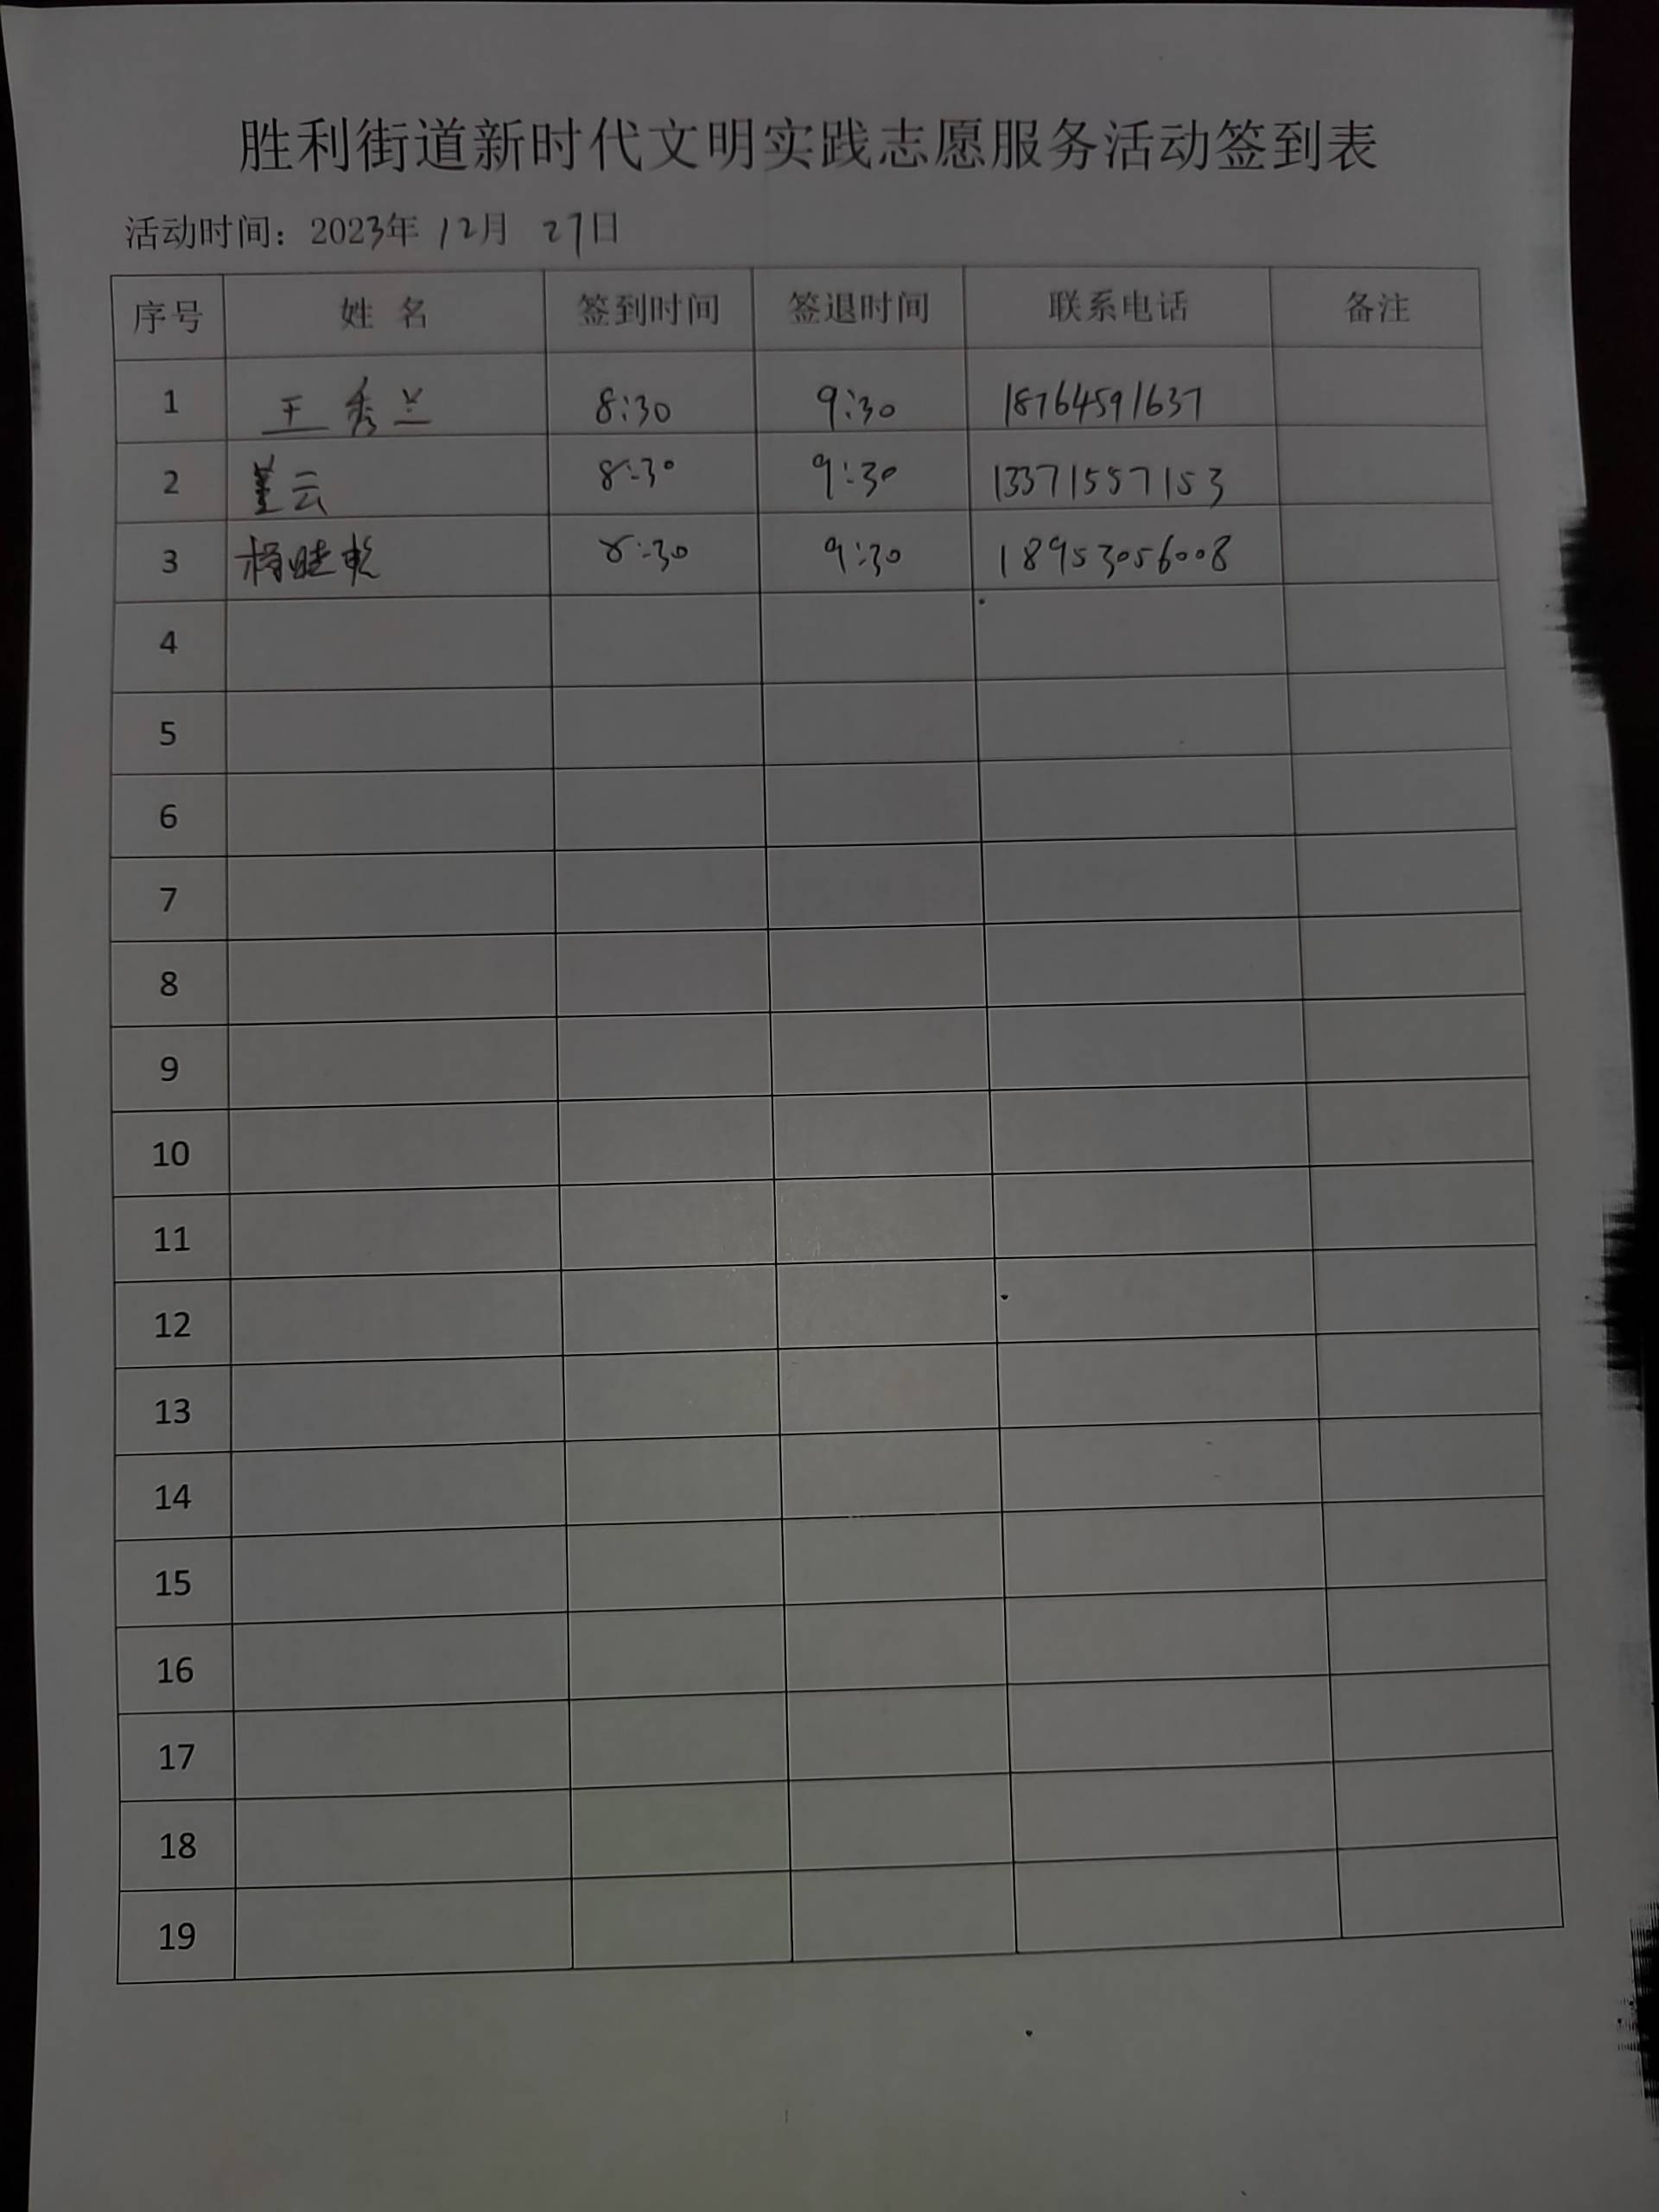 胜利街道新时代文明实践志愿服务活动签到表
活动时间：2023年 12月 27日
序号 姓 名 签到时间 签退时间 联系电话 备注
1 王秀兰 8:30 9:30 18764591637
2 董云 8:30 9:30 13371557153
3 杨 8:30 9:30 18953056008
4
5
6
7
8
9
10
11
12
13
14
15
16
17
18
19